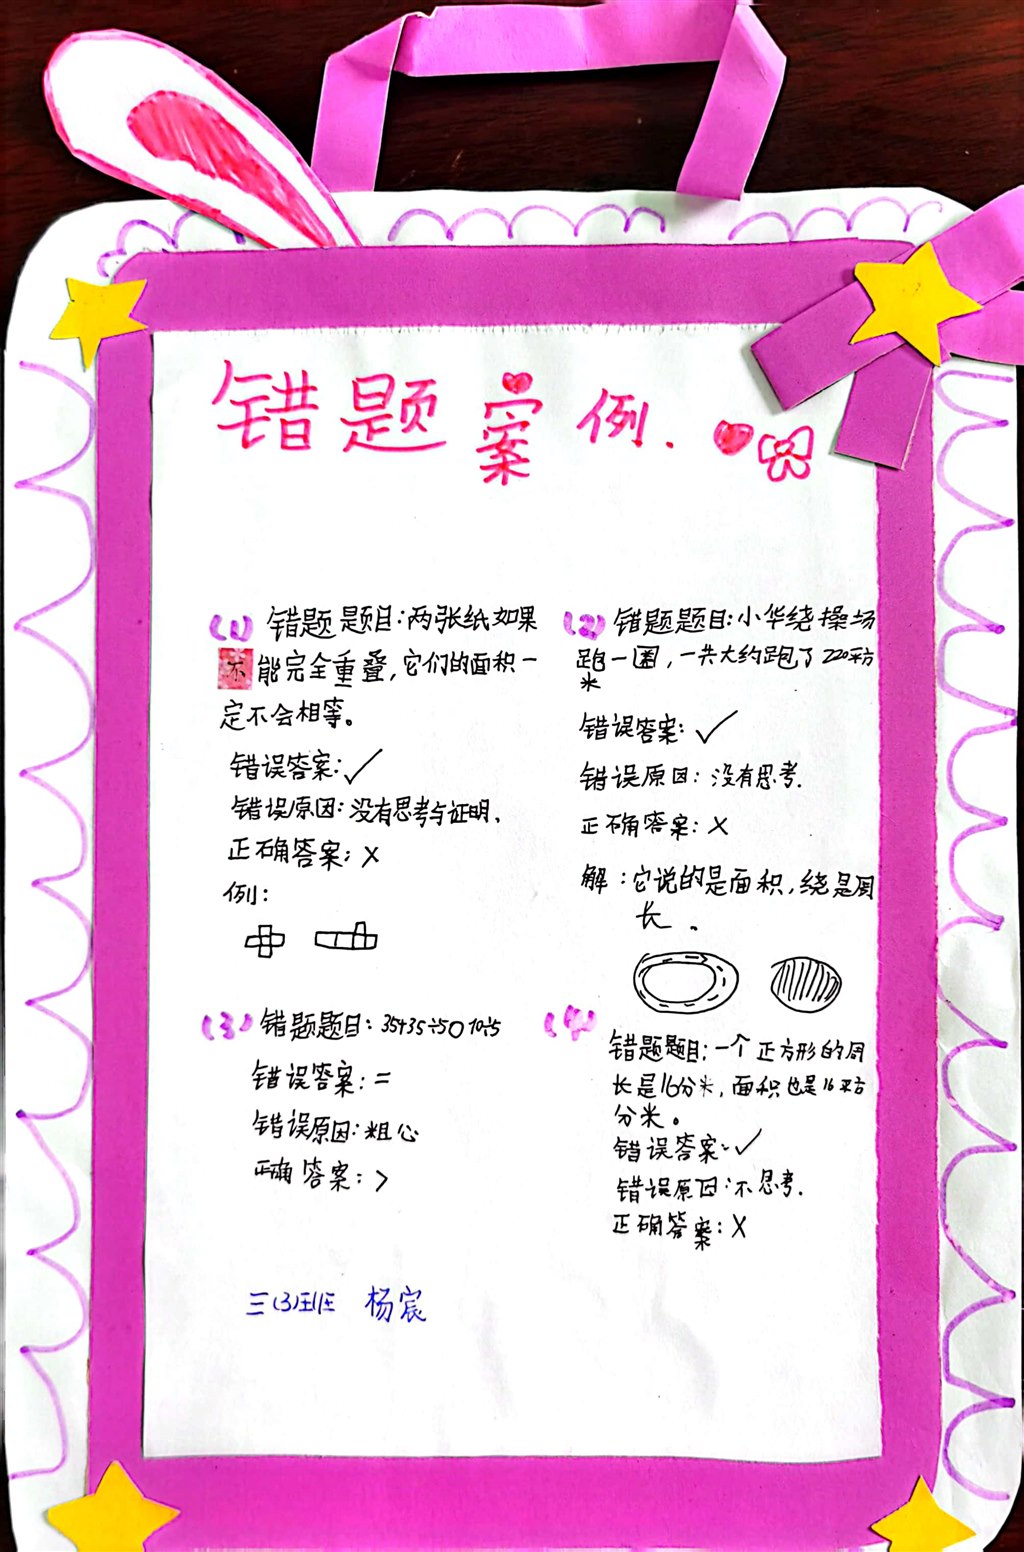 错题案例.
(1) 错题题目:两张纸如果
不能完全重叠,它们的面积一
定不会相等。
错误答案:✓
错误原因:没有思考与证明.
正确答案:×
例:
(2) 错题题目:小华绕操场
跑一圈,一共大约跑了220平方
米
错误答案:✓
错误原因:没有思考.
正确答案:×
解:它说的是面积,绕是周
长.
(3) 错题题目:35+35÷5○10÷5
错误答案:=
错误原因:粗心
正确答案:>
(4)
错题题目:一个正方形的周
长是16分米,面积也是16平方
分米。
错误答案:✓
错误原因:不思考.
正确答案:×
三(3)班 杨宸